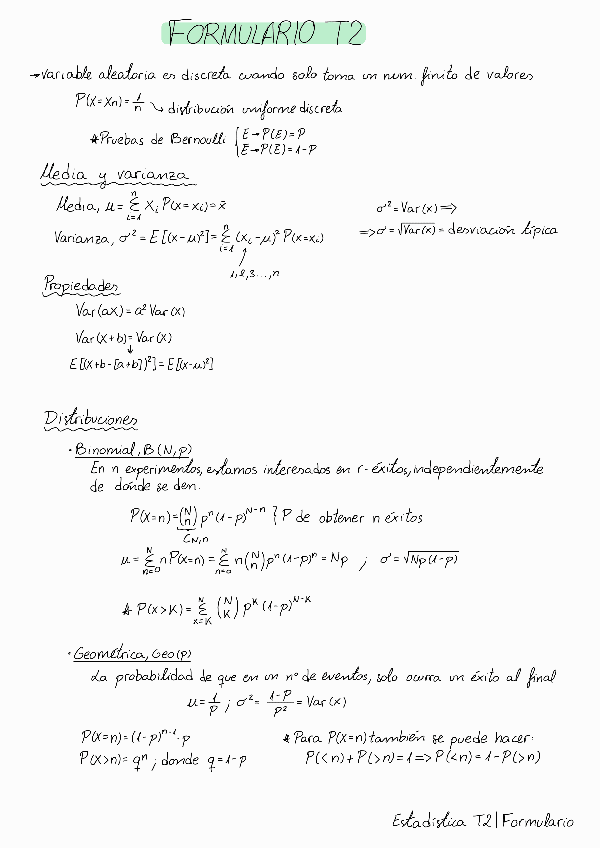 FORMULARIO T2
→ Variable aleatoria es discreta cuando solo toma un num. finito de valores
P(X=Xn) = 1/n ↘ distribución uniforme discreta
* Pruebas de Bernoulli { E → P(E) = P
Ē → P(Ē) = 1-P
Media y varianza
Media, μ = Σ_{i=1}^{n} X_i P(X=x_i) = x̄
σ² = Var(x) ⇒
Varianza, σ² = E[(x-μ)²] = Σ_{i=1}^{n} (x_i-μ)² P(X=x_i)
⇒ σ = √Var(x) = desviación típica
1,2,3...,n
Propiedades
Var(aX) = a² Var(X)
Var(X+b) = Var(X)
E[(X+b-[a+b])²] = E[(X-μ)²]
Distribuciones
· Binomial, B(N,p)
En n experimentos, estamos interesados en r-éxitos, independientemente
de dónde se den.
P(X=n) = (N n) pⁿ (1-p)^{N-n} } P de obtener n éxitos
C_{N,n}
μ = Σ_{n=0}^{N} n P(X=n) = Σ_{n=0}^{N} n (N n) pⁿ (1-p)ⁿ = Np ; σ = √Np(1-p)
* P(X>K) = Σ_{x=K}^{N} (N K) p^K (1-p)^{N-K}
· Geométrica, Geo(p)
La probabilidad de que en un nº de eventos, solo ocurra un éxito al final
μ = 1/P ; σ² = 1-P/P² = Var(X)
P(X=n) = (1-p)^{n-1}·p
* Para P(X=n) también se puede hacer:
P(X>n) = qⁿ ; donde q = 1-p
P(<n) + P(>n) = 1 ⇒ P(<n) = 1-P(>n)
Estadística T2 | Formulario